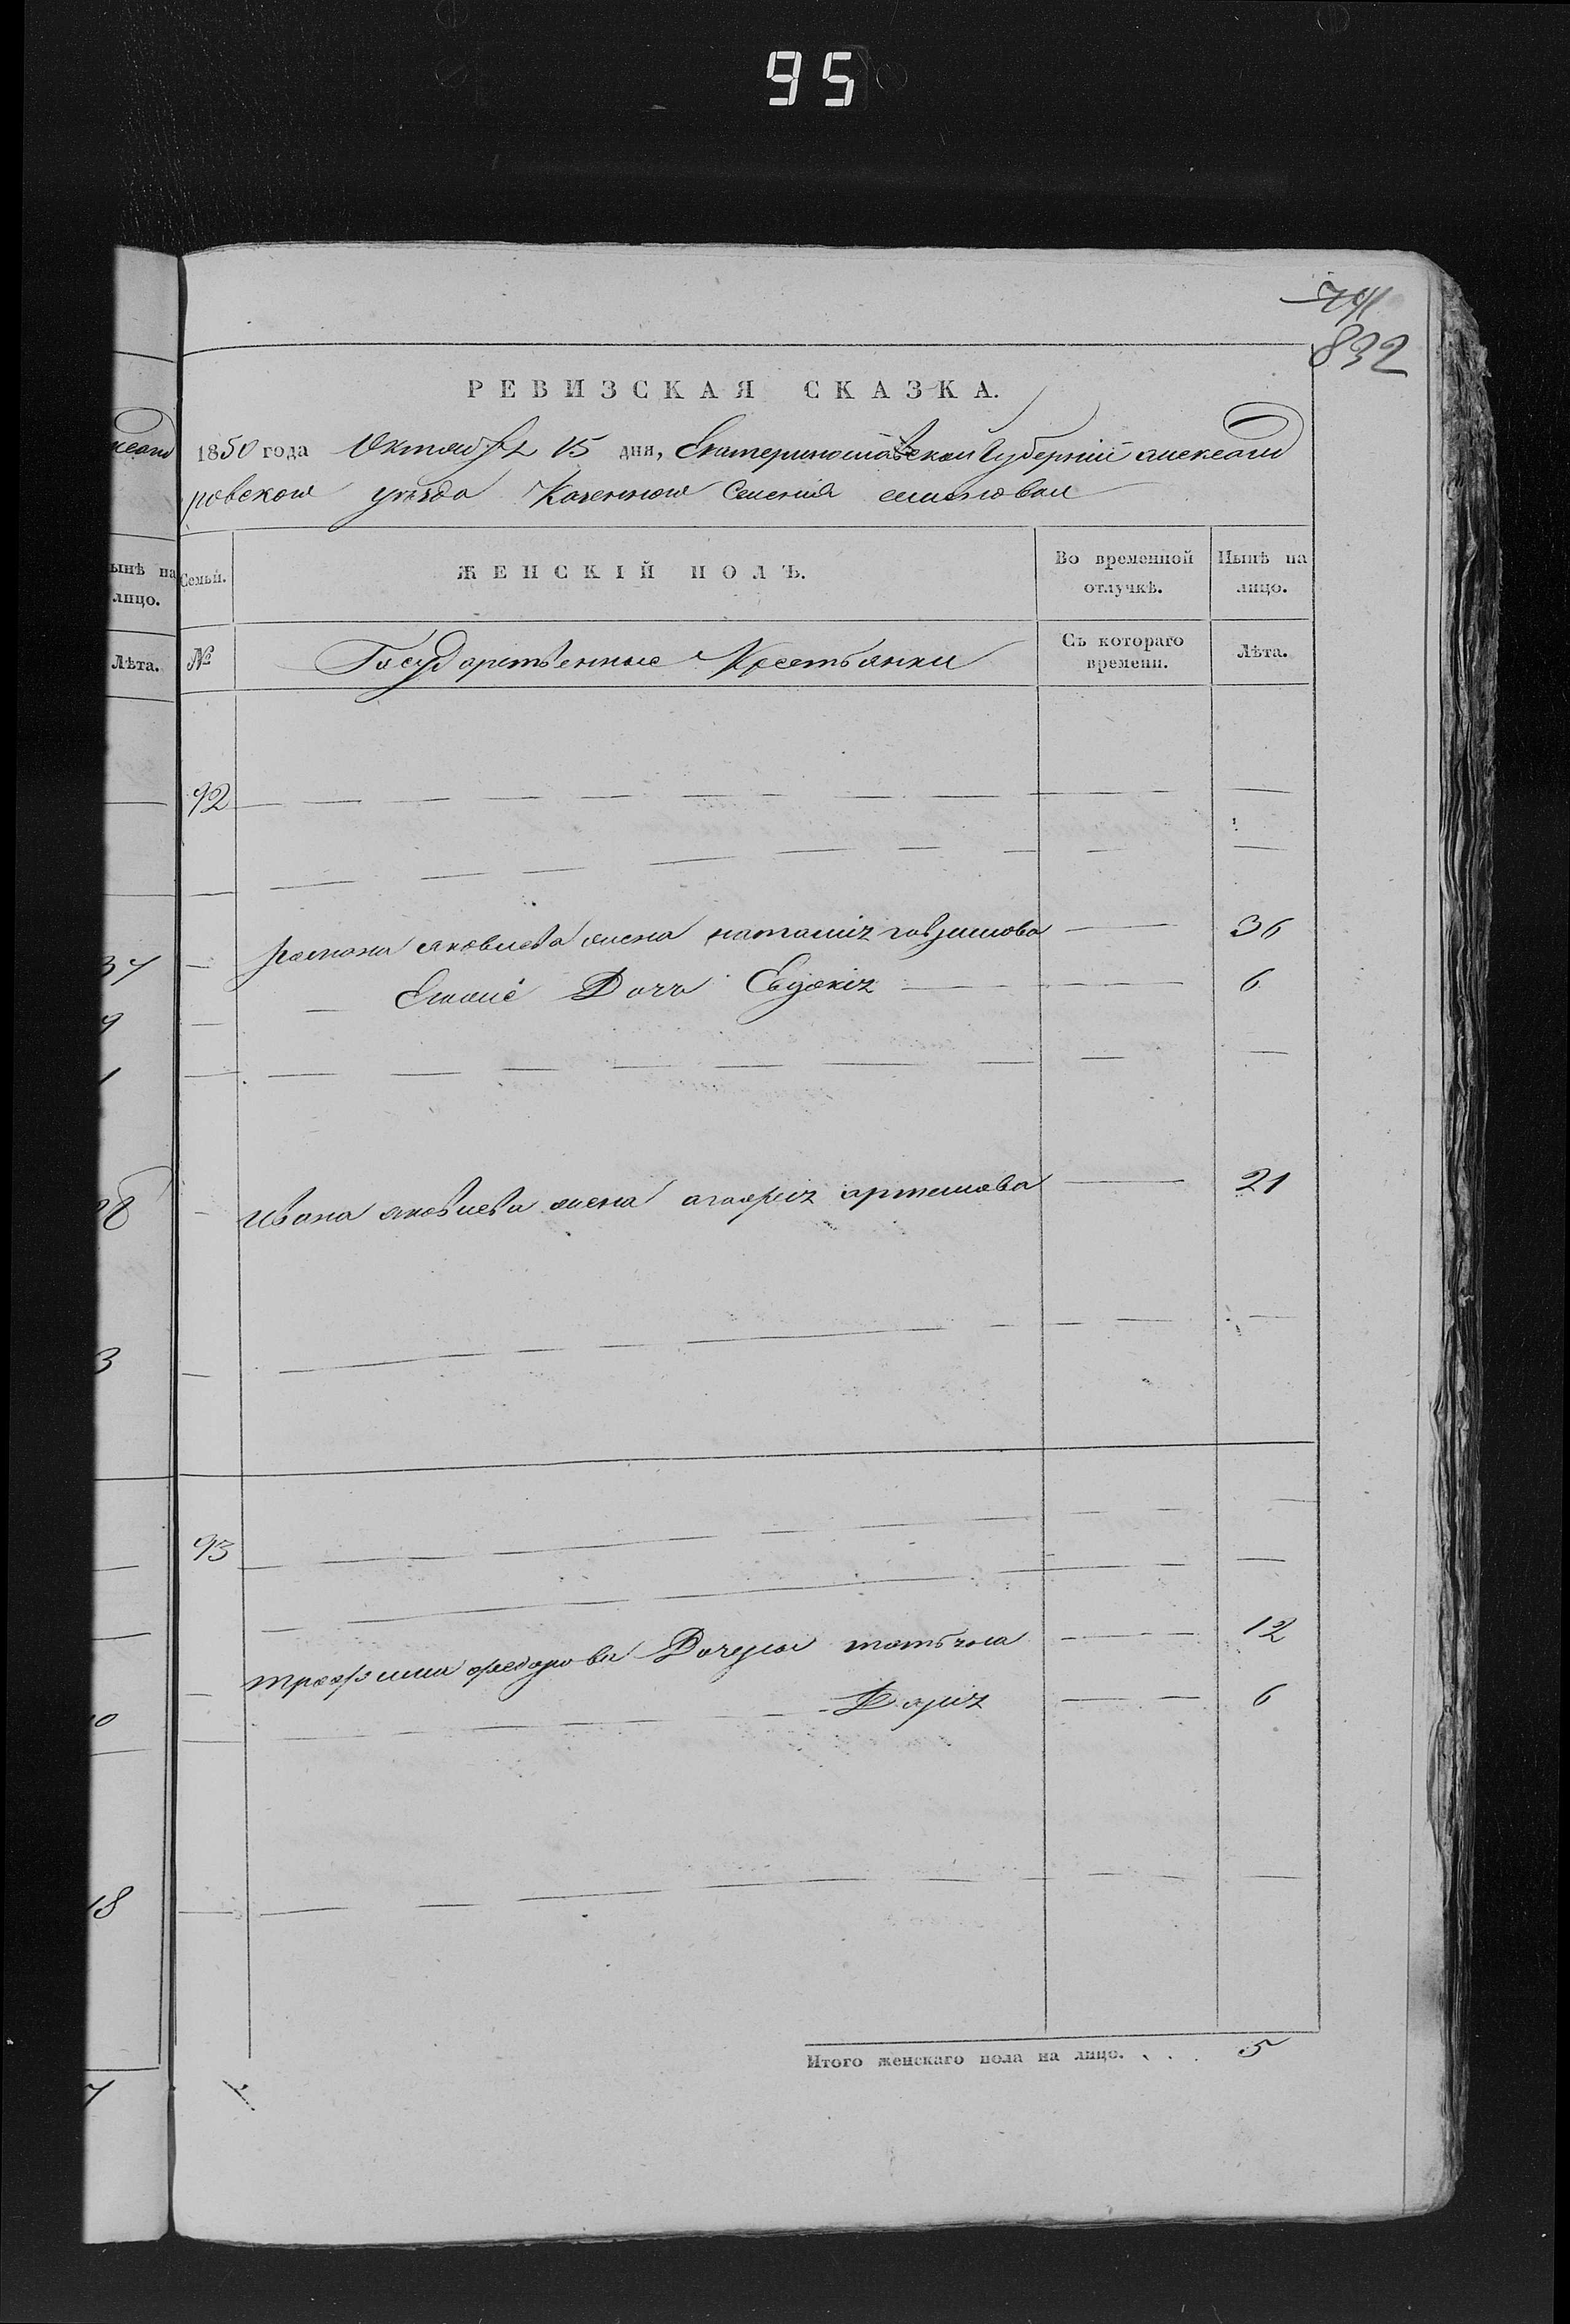 95
741
832
РЕВИЗСКАЯ СКАЗКА.
1850 года Октября 15 дня, Екатеринославской Губерніи александ
ровского уезда Казенного Селенія
Семьи. ЖЕНСКІЙ ПОЛЪ. Во временной отлучкѣ. Нынѣ на лицо.
№ Государственные Крестьянки Съ котораго времени. Лѣта.
ынѣ на
лицо.
Лѣта.
92
романа яковлева жена наталия 36
Дочь Евдокия 6
ивана яковлева жена агафия артемова 21
93
трофима федорова Дочери татьяна 12
Дария 6
37
9
1
28
3
10
18
7
Итого женскаго пола на лицо. . . . 5